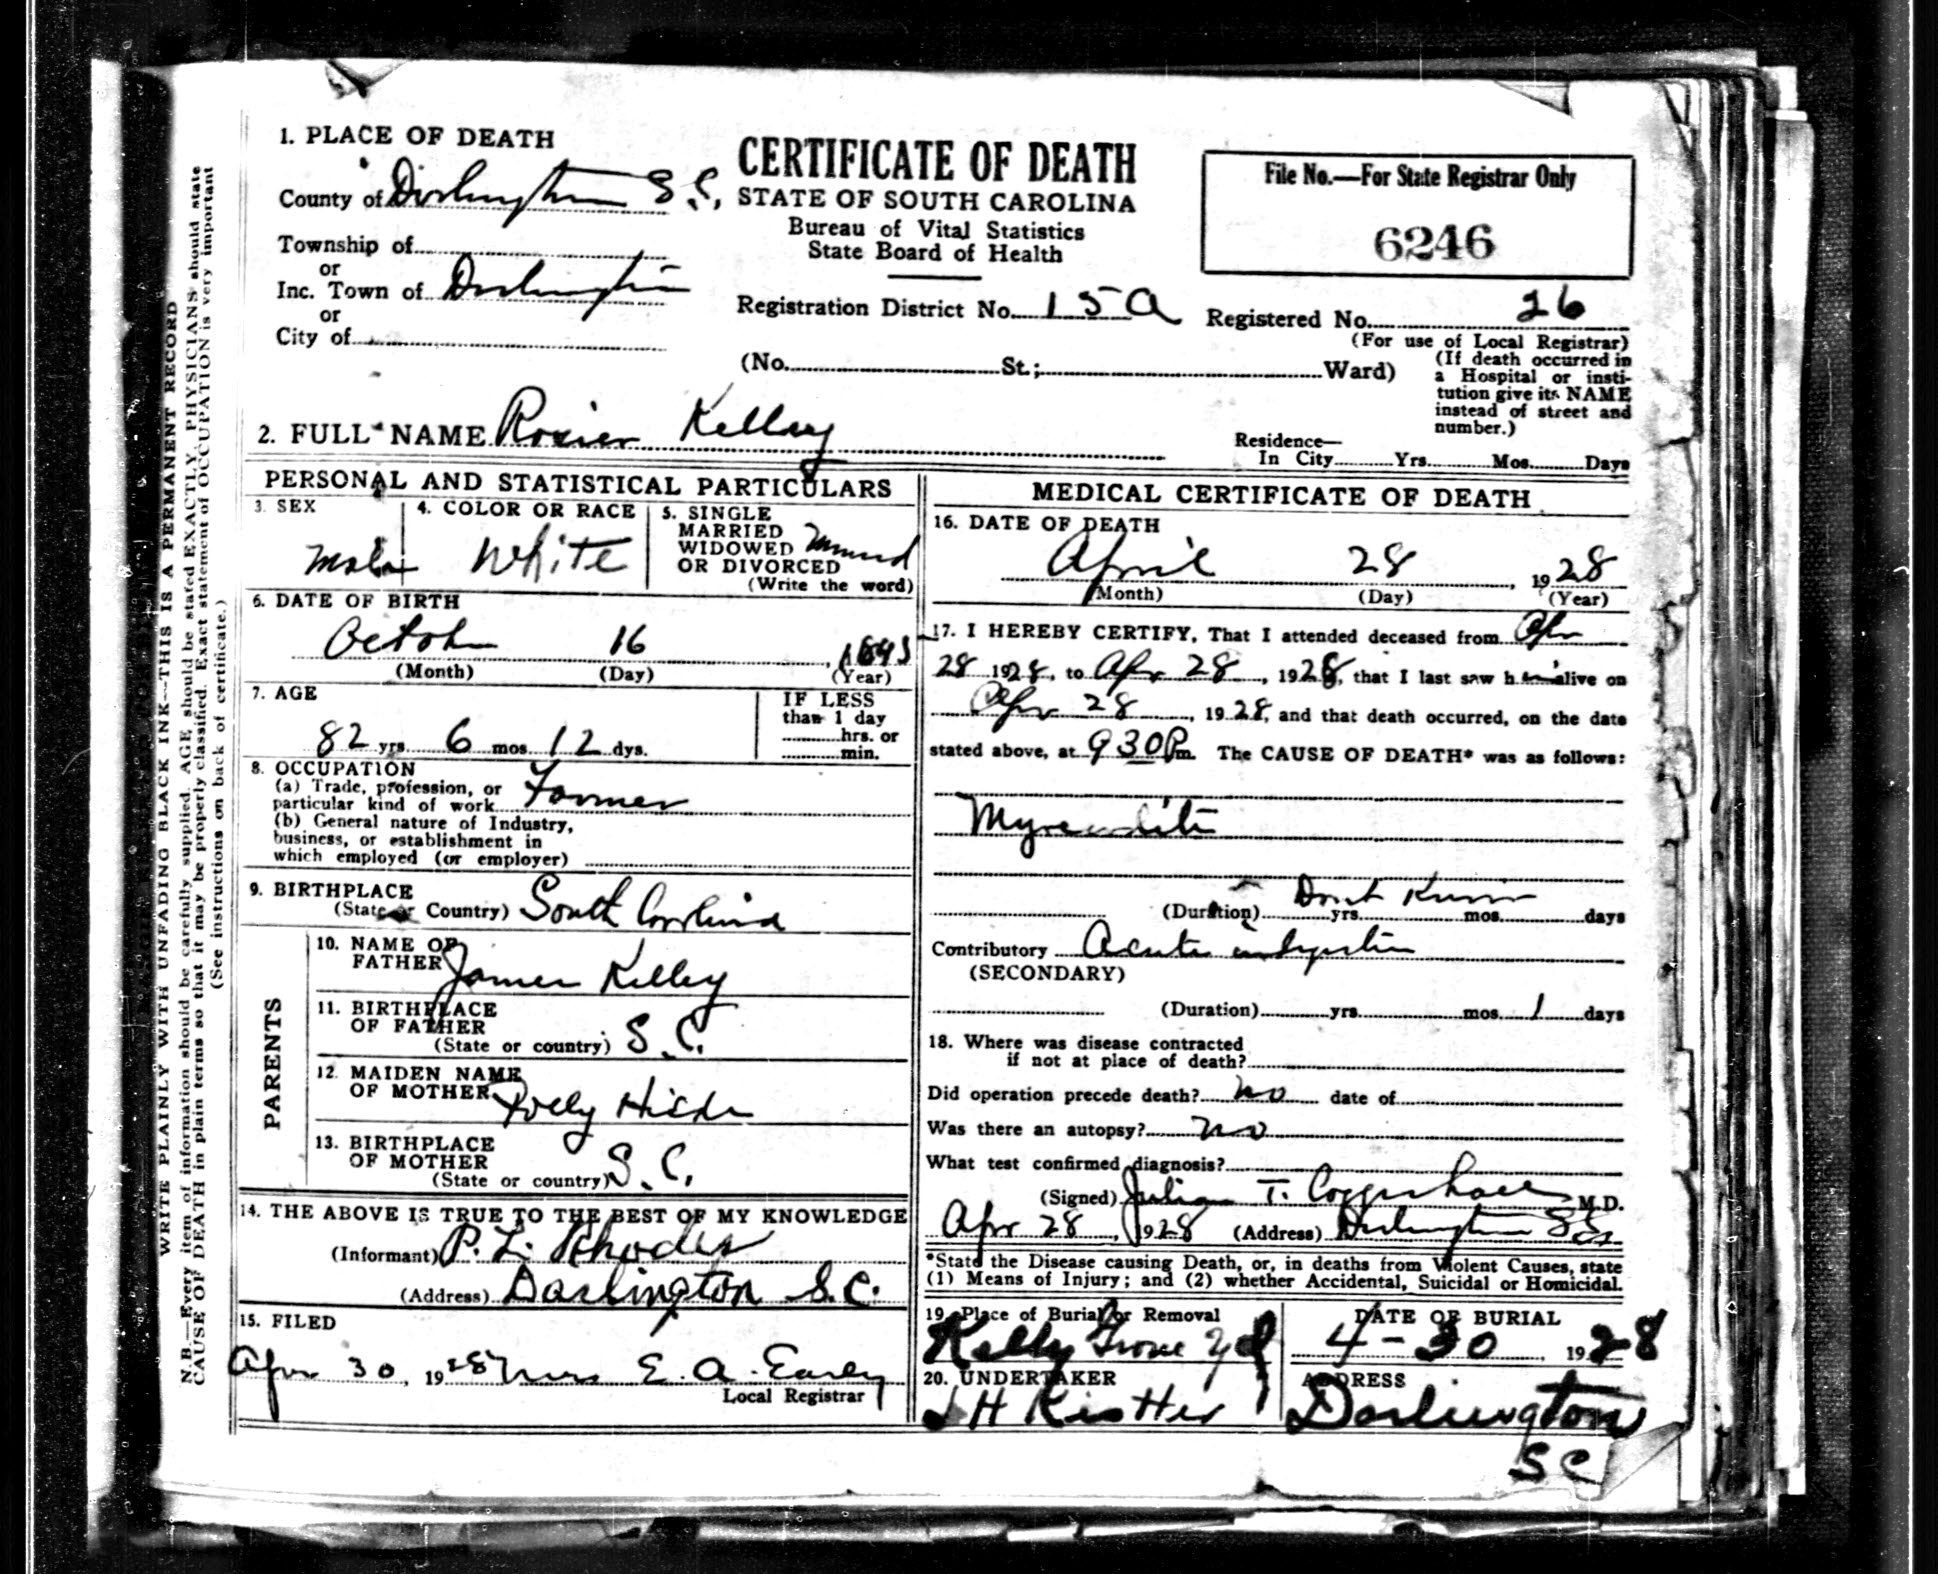 1. PLACE OF DEATH
County of Darlington S.C.
Township of
or
Inc. Town of Darlington
or
City of
CERTIFICATE OF DEATH
STATE OF SOUTH CAROLINA
Bureau of Vital Statistics
State Board of Health
File No.—For State Registrar Only
6246
Registration District No. 15A
Registered No. 26
(For use of Local Registrar)
(No. St.; Ward)
(If death occurred in
a Hospital or insti-
tution give its NAME
instead of street and
number.)
2. FULL NAME Rosier Kelley
Residence—
In City Yrs. Mos. Days
PERSONAL AND STATISTICAL PARTICULARS
3. SEX
Male
4. COLOR OR RACE
White
5. SINGLE
MARRIED
WIDOWED
OR DIVORCED
(Write the word)
6. DATE OF BIRTH
October 16
(Month) (Day) (Year)
7. AGE
82 yrs. 6 mos. 12 dys.
IF LESS
than 1 day
hrs. or
min.
8. OCCUPATION
(a) Trade, profession, or
particular kind of work Farmer
(b) General nature of Industry,
business, or establishment in
which employed (or employer)
9. BIRTHPLACE
(State or Country) South Carolina
PARENTS
10. NAME OF
FATHER James Kelley
11. BIRTHPLACE
OF FATHER
(State or country) S.C.
12. MAIDEN NAME
OF MOTHER Polly
13. BIRTHPLACE
OF MOTHER
(State or country) S.C.
14. THE ABOVE IS TRUE TO THE BEST OF MY KNOWLEDGE
(Informant) P. L. Rhodes
(Address) Darlington S.C.
15. FILED
Apr 30, 1928 Mrs E. A. Early
Local Registrar
MEDICAL CERTIFICATE OF DEATH
16. DATE OF DEATH
April 28, 1928
(Month) (Day) (Year)
17. I HEREBY CERTIFY, That I attended deceased from Apr
28 1928, to Apr 28, 1928, that I last saw him alive on
Apr 28, 1928, and that death occurred, on the date
stated above, at 930 Pm. The CAUSE OF DEATH* was as follows:
(Duration) Dont Know yrs. mos. days
Contributory Acute indigestion
(SECONDARY)
(Duration) yrs. mos. 1 days
18. Where was disease contracted
if not at place of death?
Did operation precede death? no date of
Was there an autopsy? no
What test confirmed diagnosis?
(Signed) Julian T. Coggeshall M.D.
Apr 28, 1928 (Address) Darlington S.C.
*State the Disease causing Death, or, in deaths from Violent Causes, state
(1) Means of Injury; and (2) whether Accidental, Suicidal or Homicidal.
19. Place of Burial or Removal
Kelly Grove yd
DATE OF BURIAL
4-30 1928
20. UNDERTAKER
J H Kistler
ADDRESS
Darlington
SC
WRITE PLAINLY WITH UNFADING BLACK INK—THIS IS A PERMANENT RECORD
N. B.—Every item of information should be carefully supplied. AGE should be stated EXACTLY. PHYSICIANS should state
CAUSE OF DEATH in plain terms so that it may be properly classified. Exact statement of OCCUPATION is very important
(See instructions on back of certificate.)